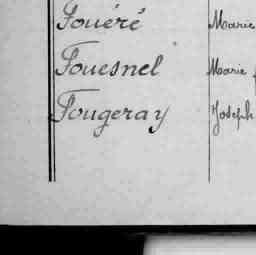 Fouéré Marie
Fouesnel Marie
Fougeray Joseph